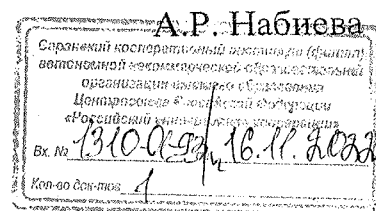 А.Р. Набиева
Саранский кооперативный институт (филиал)
автономной некоммерческой образовательной
организации высшего образования
Центросоюза Российской Федерации
«Российский университет кооперации»
Вх. № 16.11.2022
Кол-во док-тов 1